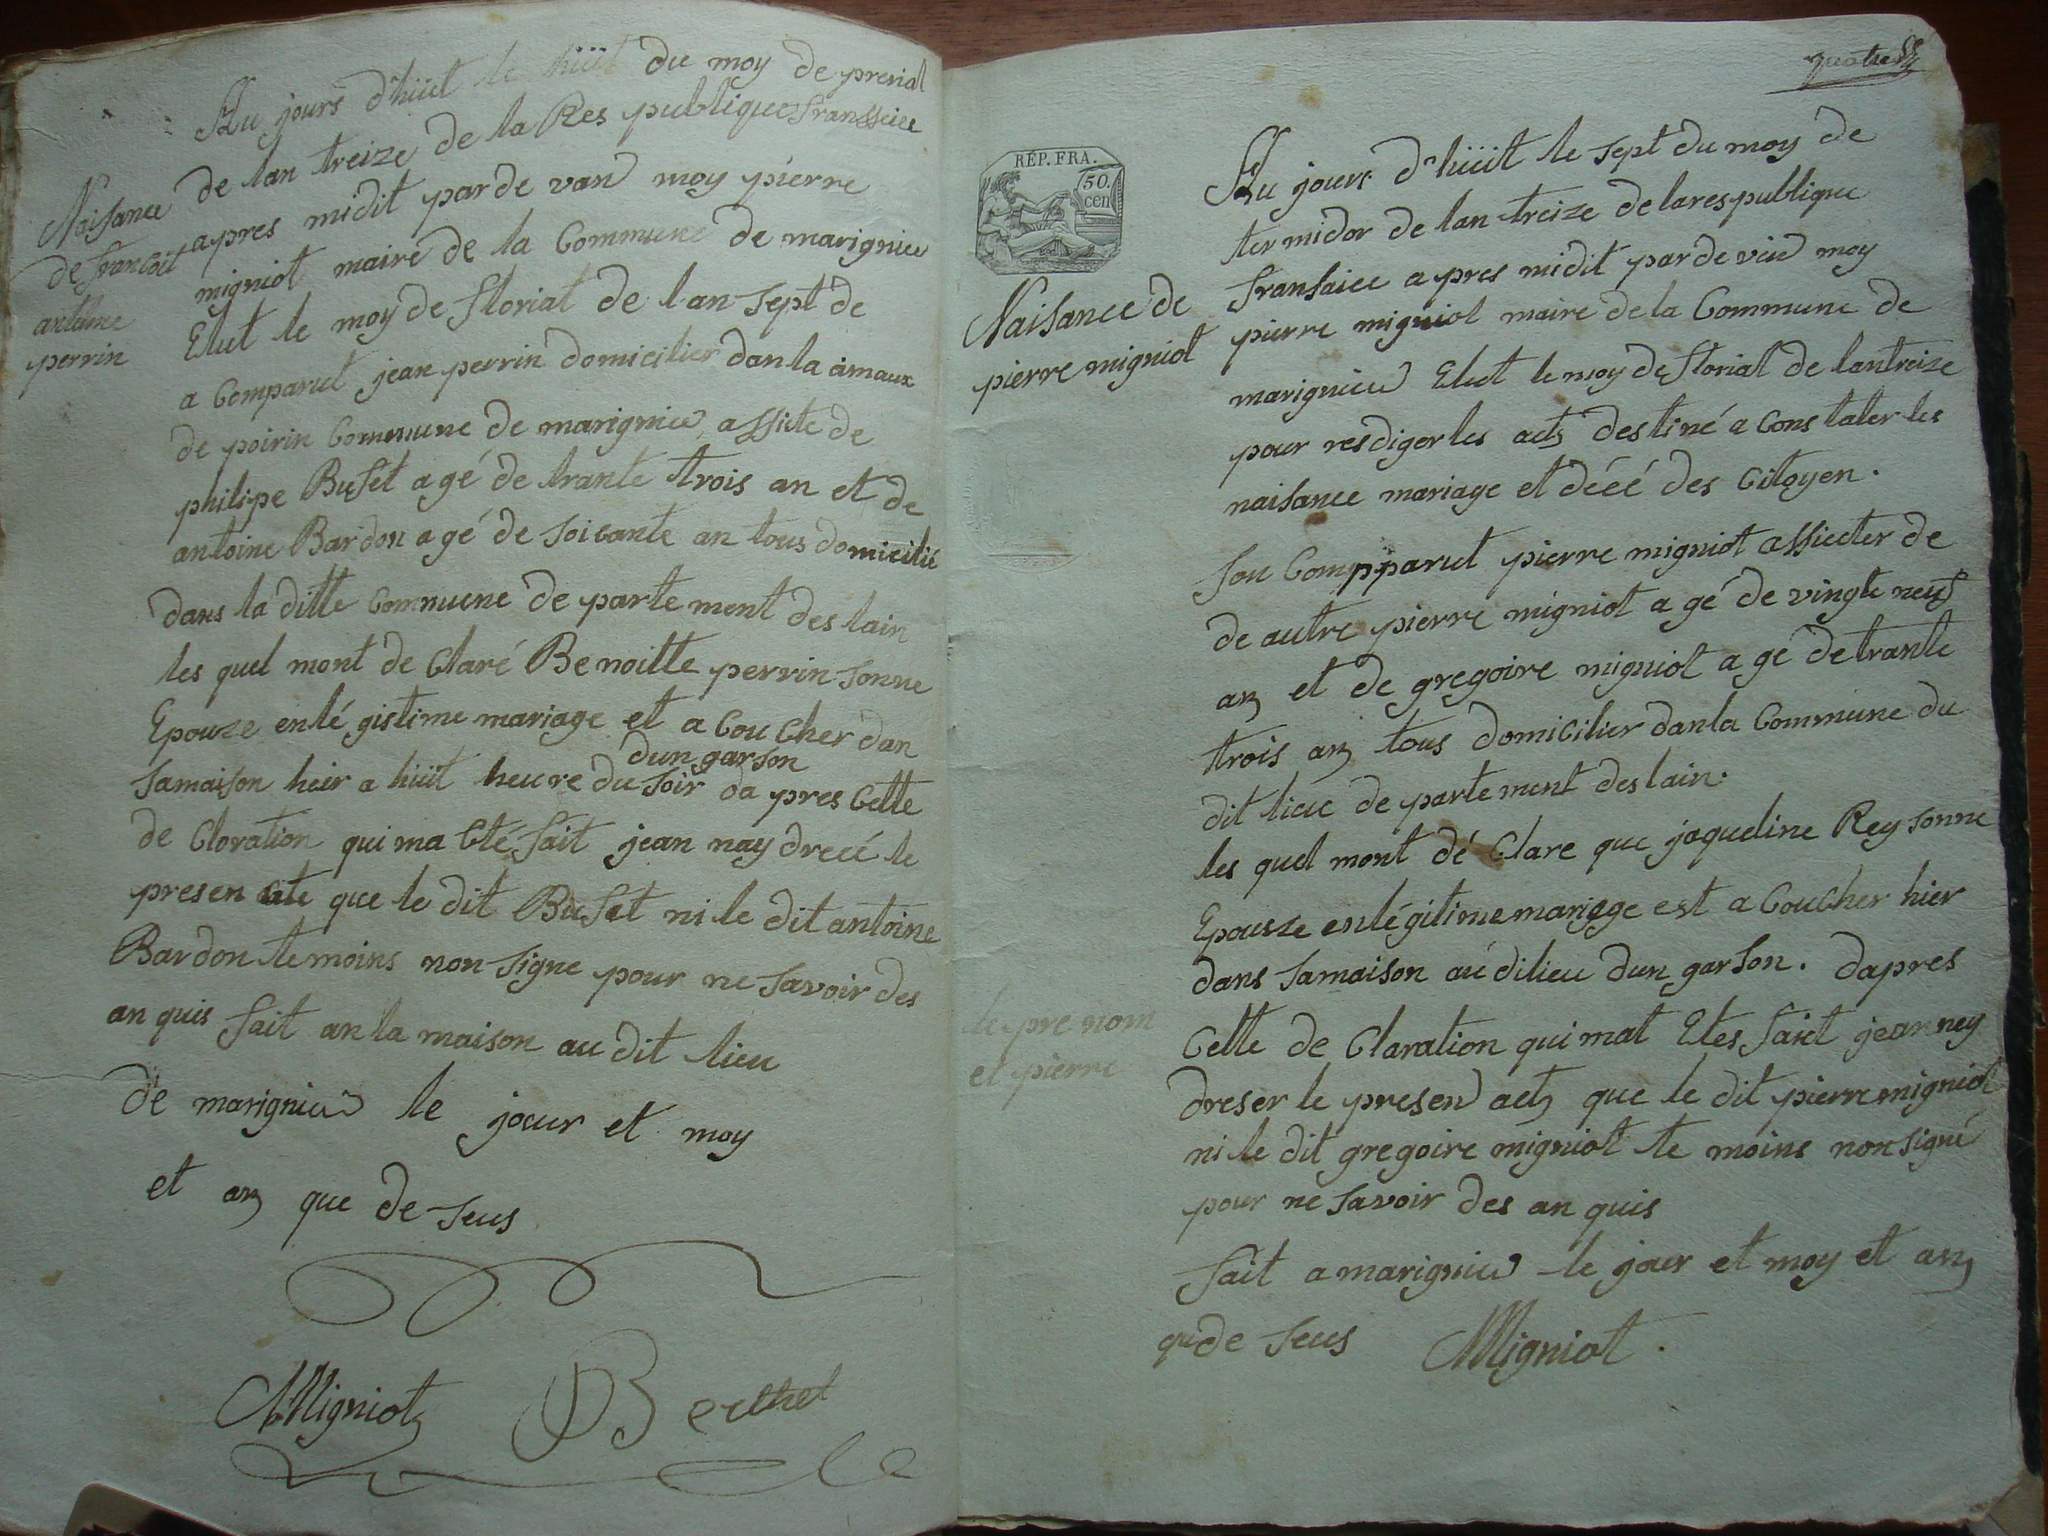 Au jours d'hüit le hüit du moy de prerial
de lan treize de la Res publique fransseiee
apres midit par de van moy pierre
migniot maire de la Commune de marignieu
Elut le moy de floriat de lan sept de
a Comparut jean perrin domicilier dan la amaux
de poirin Commune de marignieu assiste de
philipe Bufet agé de trante trois an et de
antoine Bardon agé de soisante an tous domicilié
dans la ditte Commune de parte ment des lain
les quel mont de Claré Benoitte perrin sonne
Epouze enlé gistime mariage et a CouCher dan
dun garson
samaison heir a hüit heure du soir da pres Cette
de Claration qui ma Eté fait jean nay dreeé le
presen acte que le dit Bufet ni le dit antoine
Bardon temoins non signe pour ne savoir des
an quis fait an la maison au dit lieu
de marignieu le jour et moy
et an que de seus
Migniot Berthet
Naisance
de francoit
antoine
perrin
quatre
RÉP. FRA.
50.
cen
Naisance de
pierre migniot
Au jours d'hüit le sept du moy de
ter midor de lan treize de la res publique
fransaiee a pres midit par de veu moy
pierre migniot maire de la Commune de
marignieu Elut le moy de floriat de lantreize
pour resdiger les acts destiné a Constater les
naisance mariage et déeé des Citoyen.
son Compparut pierre migniot assiecter de
de autre pierre migniot agé de vingte neuf
an et de gregoire migniot a gé de trante
trois an tous domicilier danla Commune du
dit lieu de parte ment des lain.
les quel mont dé Clare que jaqueline Rey sonne
Epousze enlégitime mariage est a CouCher hier
dans samaison au dilieu dun garson. dapres
Cette de Claration qui mat Etes fait jean ney
dreser le presen acts que le dit pierre migniot
ni le dit gregoire migniot te moins non signé
pour ne savoir des an quis
fait a marignieu le jour et moy et an
qu de seus Migniot.
le pre nom
et pierre